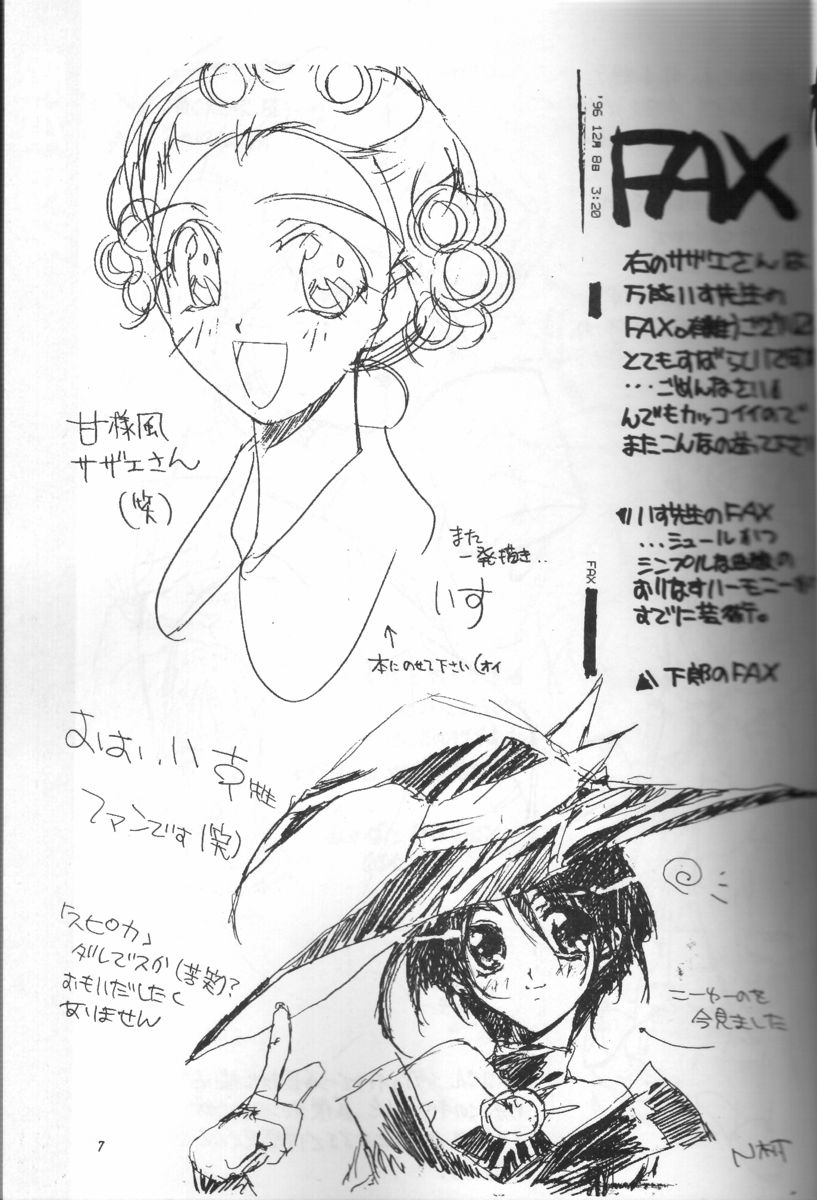 '96 12月 8日 3:20
FAX
右のサザエさんは
いす先生の
FAX。
とてもすばらしいです
...ごめんなさい。
んでもカッコイイので
またこんなの送って下さい
いす先生のFAX
...シュールかつ
シンプルな
おりなすハーモニーが
すでに芸術。
下郎のFAX
FAX
甘様風
サザエさん
(笑)
また
一発描き..
いす
↑
本にのせて下さい(オイ
おはいいす先生
ファンです(笑)
「スピカ」
ダレですか(苦笑)?
おもいだしたく
ありません
こーゆーのを
今見ました
N村T
7